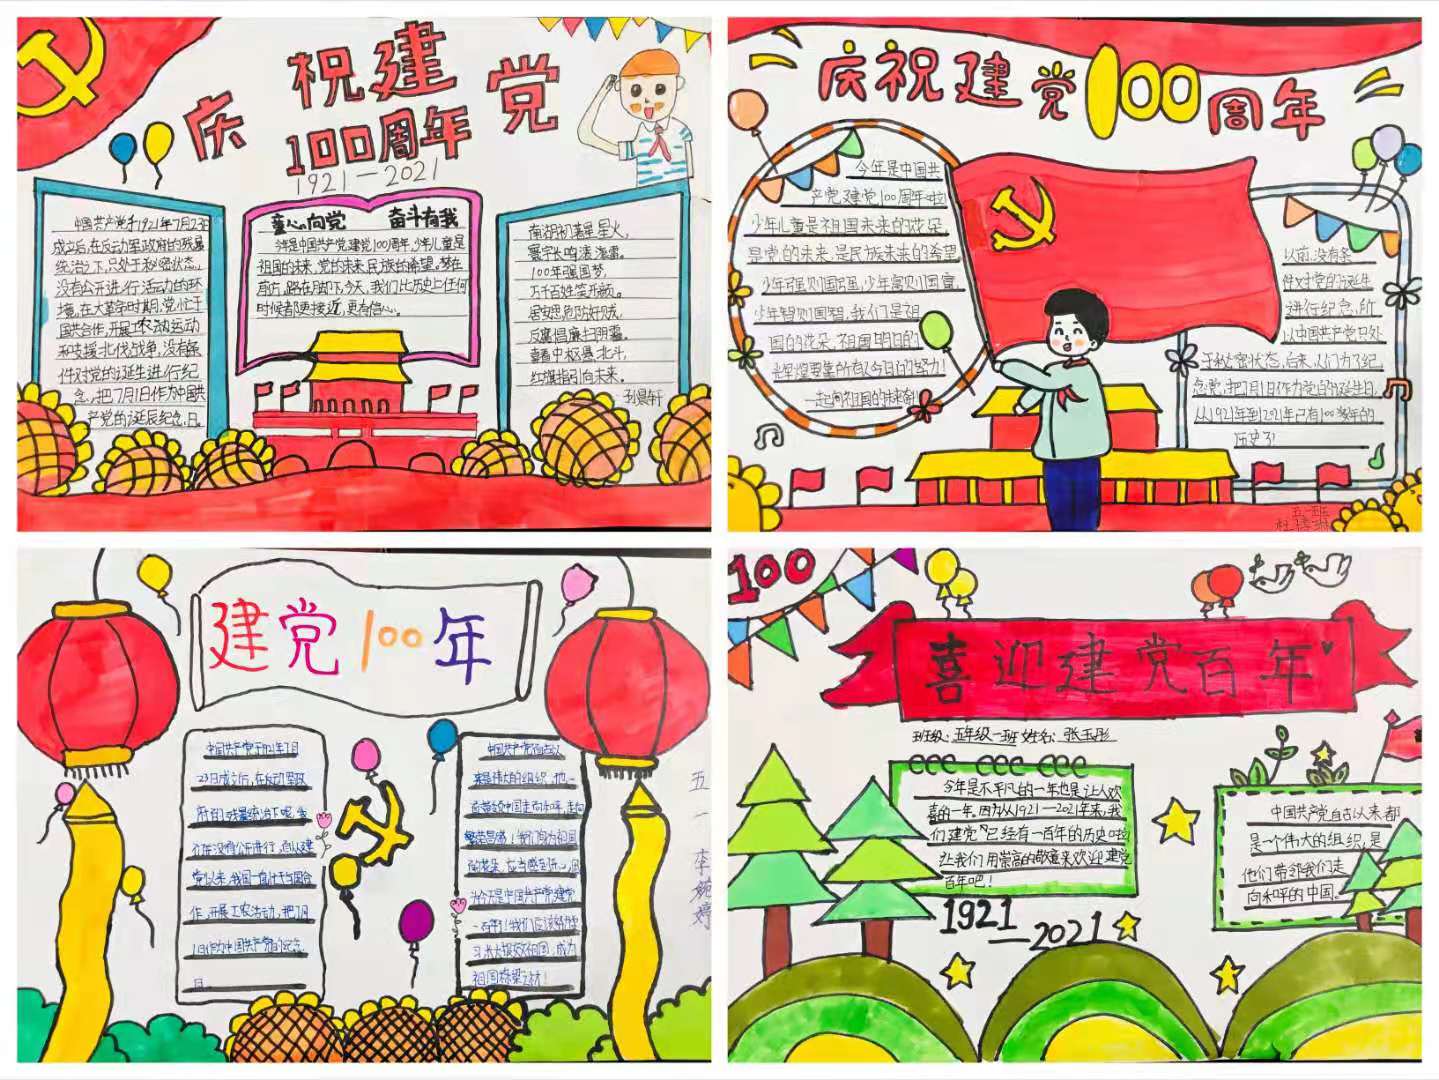 庆祝建党
100周年
1921—2021
中国共产党于1921年7月23日
成立后,在反动军政府的残暴
统治之下,只处于秘密状态,
没有公开进行活动的环
境,在大革命时期,党忙于
国共合作,开展工农运动
和支援北伐战争,没有条
件对党的诞生进行纪
念,把7月1日作为中国共
产党的诞辰纪念日。
童心向党 奋斗有我
今年是中国共产党建党100周年,少年儿童是
祖国的未来,党的未来,民族的希望。梦在
前方,路在脚下,今天,我们比历史上任何
时候都更接近,更有信心。
南湖初著星星火,
寰宇长鸣滚滚雷。
100年强国梦,
万千百姓笑开颜。
居安思危防奸贼,
反腐倡廉扫阴霾。
北斗,
红旗指引向未来。
庆祝建党100周年
今年是中国共
产党建党100周年啦
少年儿童是祖国未来的花朵
是党的未来,是民族未来的希望
少年强则国强,少年富则国富,
少年智则国智,我们是祖
国的花朵,祖国明日的
光辉要靠所有人今日的努力!
一起向祖国的未来奋
以前,没有条
件对党的诞生
进行纪念,所
以中国共产党只处
于秘密状态,后来,人们为了纪
念党,把7月1日作为党的诞生日,
从1921年到2021年已有100多年的
历史了!
五一班
建党100年
中国共产党于1921年7月
23日成立后,在反动军政
府的残暴统治下呢,
没有公开进行,自从建
党以来,我国一直忙于与国合
作,开展工农活动,把7月
1日作为中国共产党的纪念
日。
中国共产党自古以
来是伟大的组织,他
带领中国走向和平,走向
繁荣昌盛!我们身为祖国
的花朵,应当感到开心,因
为今天是中国共产党建党
一百年!让我们应该好好学
习来报效祖国,成为
祖国栋梁之材!
五一 李婉婷
100
喜迎建党百年
班级:五年级一班 姓名:张玉彤
今年是不平凡的一年也是让人欢
喜的一年。因为从1921—2021年来,我
们建党已经有一百年的历史啦
让我们用崇高的敬意来欢迎建党
百年吧!
1921
—2021
中国共产党自古以来都
是一个伟大的组织,是
他们带领我们走
向和平的中国。